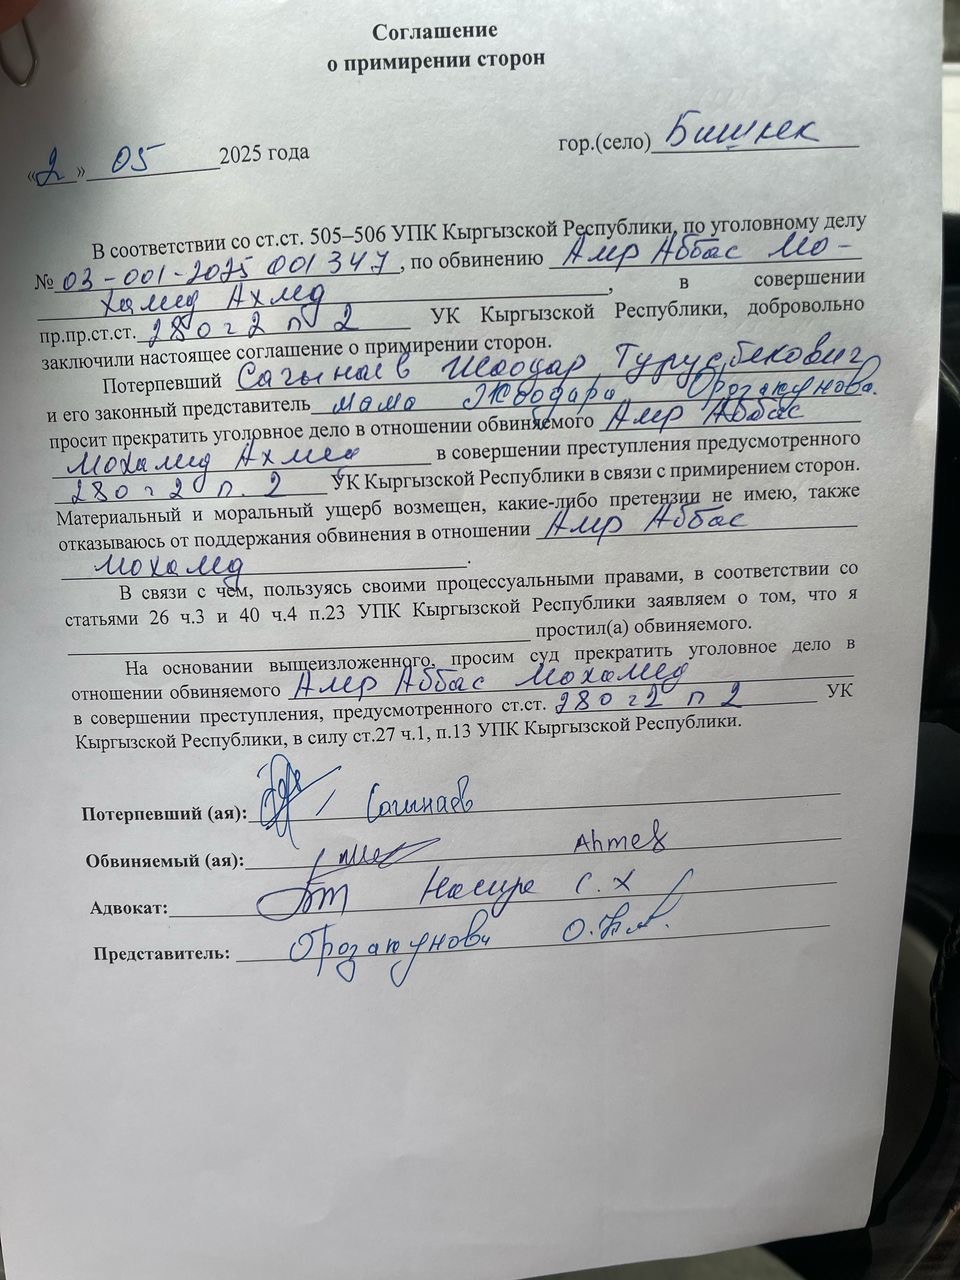 Соглашение
о примирении сторон
«2» 05 2025 года гор.(село) Бишкек
В соответствии со ст.ст. 505–506 УПК Кыргызской Республики, по уголовному делу
№ 03-001-2025 001347, по обвинению Амр Аббас Мо-
хамед Ахмед, в совершении
пр.пр.ст.ст. 280 ч 2 п 2 УК Кыргызской Республики, добровольно
заключили настоящее соглашение о примирении сторон.
Потерпевший Сагынаев Турусбекович
и его законный представитель мама Орозакунова.
просит прекратить уголовное дело в отношении обвиняемого Амр Аббас
Мохамед Ахмед в совершении преступления предусмотренного
280 ч 2 п. 2 УК Кыргызской Республики в связи с примирением сторон.
Материальный и моральный ущерб возмещен, какие-либо претензии не имею, также
отказываюсь от поддержания обвинения в отношении Амр Аббас
Мохамед.
В связи с чем, пользуясь своими процессуальными правами, в соответствии со
статьями 26 ч.3 и 40 ч.4 п.23 УПК Кыргызской Республики заявляем о том, что я
простил(а) обвиняемого.
На основании вышеизложенного, просим суд прекратить уголовное дело в
отношении обвиняемого Амр Аббас Мохамед
в совершении преступления, предусмотренного ст.ст. 280 ч 2 п 2 УК
Кыргызской Республики, в силу ст.27 ч.1, п.13 УПК Кыргызской Республики.
Потерпевший (ая): Сагынаев
Обвиняемый (ая): Ahmed
Адвокат: С.Х
Представитель: Орозакунова